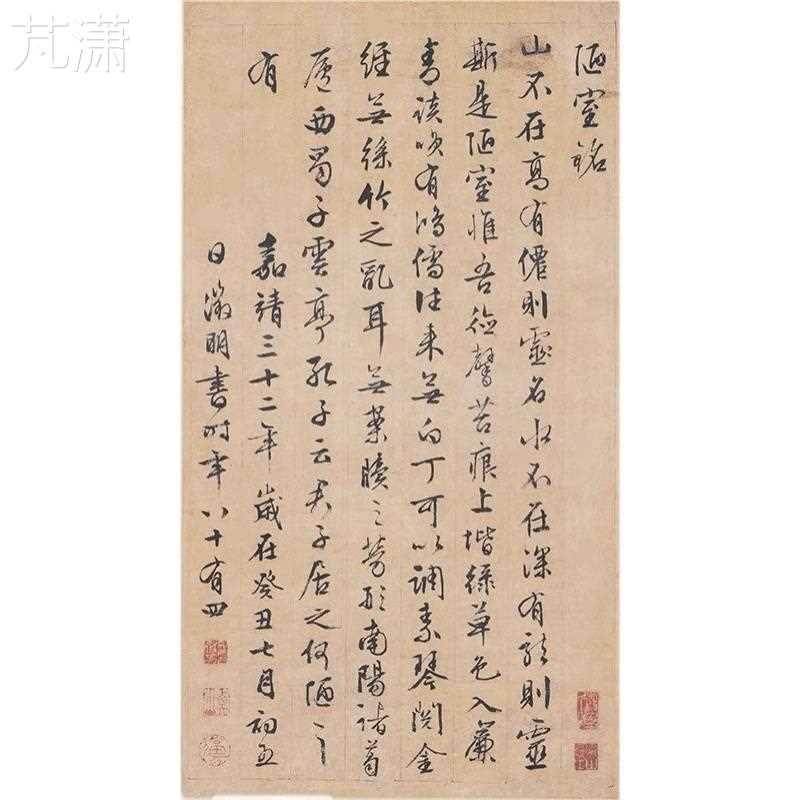 芃潇
陋室銘
山不在高有僊則靈名水不在深有龍則靈
斯是陋室惟吾德馨苔痕上堦綠草色入簾
青談笑有鴻儒往來無白丁可以調素琴閱金
經無絲竹之亂耳無案牘之勞形南陽諸葛
廬西蜀子雲亭孔子云君子居之何陋之
有
嘉靖三十二年歲在癸丑七月初五
日徵明書時年八十有四